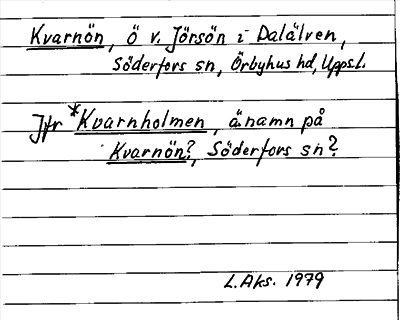 Kvarnön, Ö v. Jörsön i Dalälven,
Söderfors sn, Örbyhus hd, Upps.l.
Jfr *Kvarnholmen, änamn på
Kvarnön?, Söderfors sn?
L.Aks. 1979